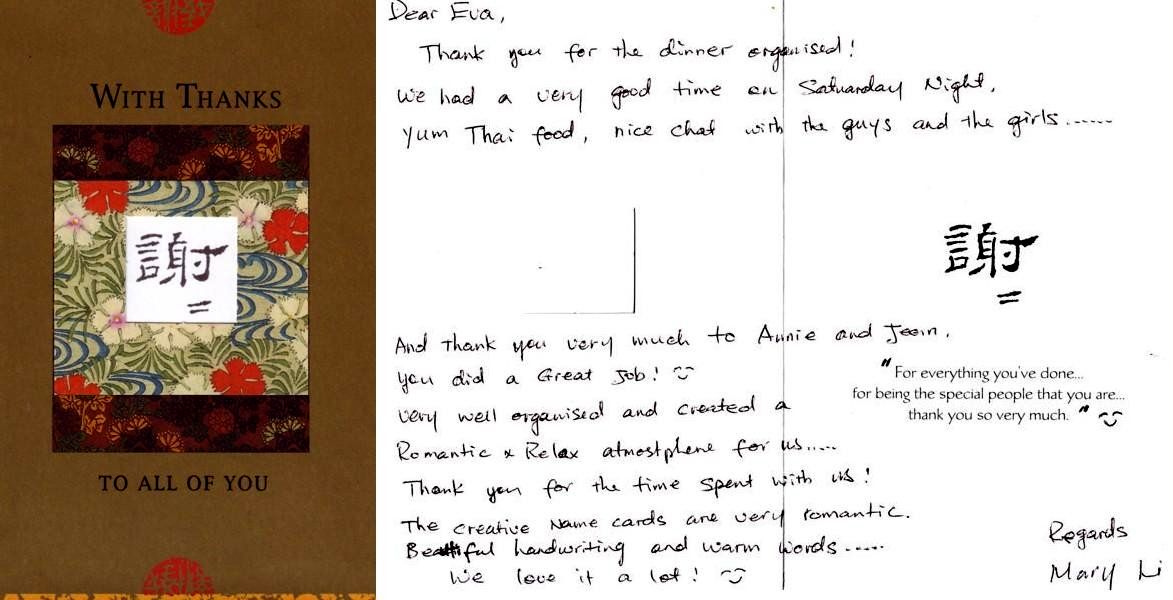 WITH THANKS
謝
TO ALL OF YOU
Dear Eva,
Thank you for the dinner organised!
We had a very good time on Satuarday Night,
Yum Thai food, nice chat with the guys and the girls......
謝
And Thank you very much to Annie and
you did a Great Job!
very well organised and created a
Romantic & Relax atmostphene for us.....
Thank you for the time spent with us!
The creative Name cards are very romantic.
Beautiful handwriting and warm words.....
We love it a lot!
"For everything you've done...
for being the special people that you are...
thank you so very much."
Regards
Mary Li